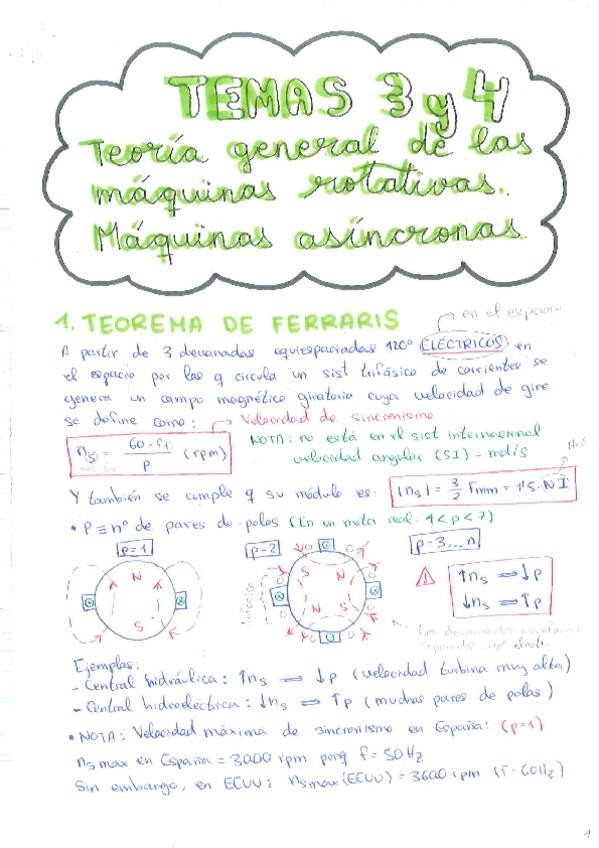 TEMAS 3 y 4
Teoría general de las
máquinas rotativas.
Máquinas asíncronas
1. TEOREMA DE FERRARIS
en el espacio
A partir de 3 devanados equiespaciados 120º ELÉCTRICOS en
el espacio por los q circula un sist trifásico de corrientes se
genera un campo magnético giratorio cuya velocidad de giro
se define como: → Velocidad de sincronismo
ns = 60·f1 / p (rpm)
NOTA: no está en el sist internacional
velocidad angular (SI) = rad/s
Y también se cumple q su módulo es: |ns| = 3/2 Fmm = 1'5·N I
• P ≡ nº de pares de polos (En un motor real: 1<p<7)
p=1
p=2
p=3...n
N
S
S
N
N
S
⚠ ↑ns ⟹ ↓p
↓ns ⟹ ↑p
Los devanados
Ejemplos:
- Central hidráulica: ↑ns ⟹ ↓p (velocidad turbina muy alta)
- Central hidroeléctrica: ↓ns ⟹ ↑p (muchos pares de polos)
• NOTA: Velocidad máxima de sincronismo en España: (p=1)
ns max en España = 3000 rpm porq f=50Hz
Sin embargo, en EEUU: ns max (EEUU) = 3600 rpm (f=60Hz)
1